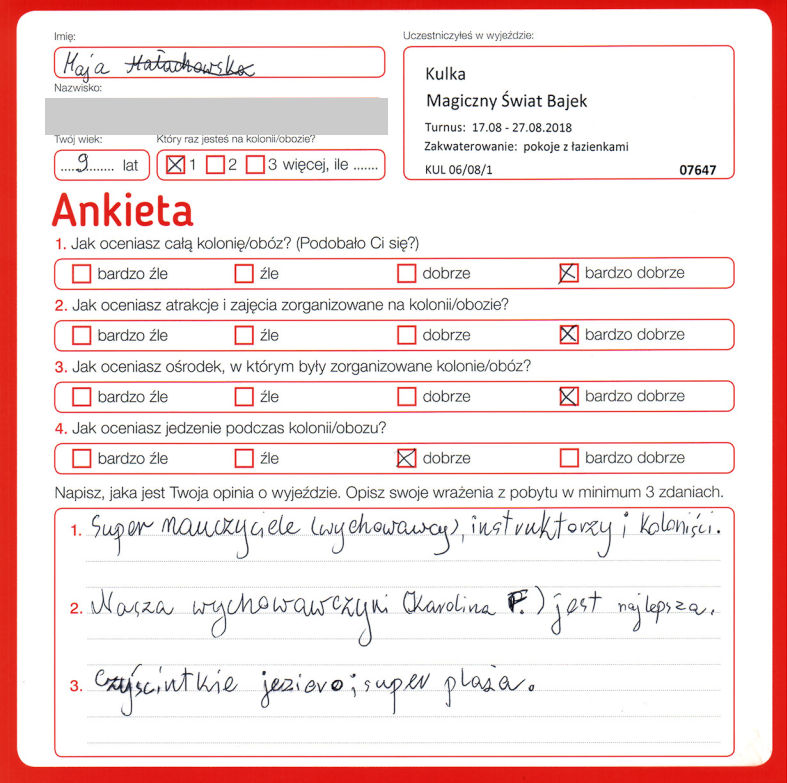 Imię:
Maja
Nazwisko:
Twój wiek:
Który raz jesteś na kolonii/obozie?
....9....... lat
1 2 3 więcej, ile .......
Uczestniczyłeś w wyjeździe:
Kulka
Magiczny Świat Bajek
Turnus: 17.08 - 27.08.2018
Zakwaterowanie: pokoje z łazienkami
KUL 06/08/1 07647
Ankieta
1. Jak oceniasz całą kolonię/obóz? (Podobało Ci się?)
bardzo źle źle dobrze bardzo dobrze
2. Jak oceniasz atrakcje i zajęcia zorganizowane na kolonii/obozie?
bardzo źle źle dobrze bardzo dobrze
3. Jak oceniasz ośrodek, w którym były zorganizowane kolonie/obóz?
bardzo źle źle dobrze bardzo dobrze
4. Jak oceniasz jedzenie podczas kolonii/obozu?
bardzo źle źle dobrze bardzo dobrze
Napisz, jaka jest Twoja opinia o wyjeździe. Opisz swoje wrażenia z pobytu w minimum 3 zdaniach.
1. Super nauczyciele (wychowawcy), instruktorzy i koloniści.
2. Nasza wychowawczyni (Karolina F.) jest najlepsza.
3. Czyściutkie jezioro i super plaża.